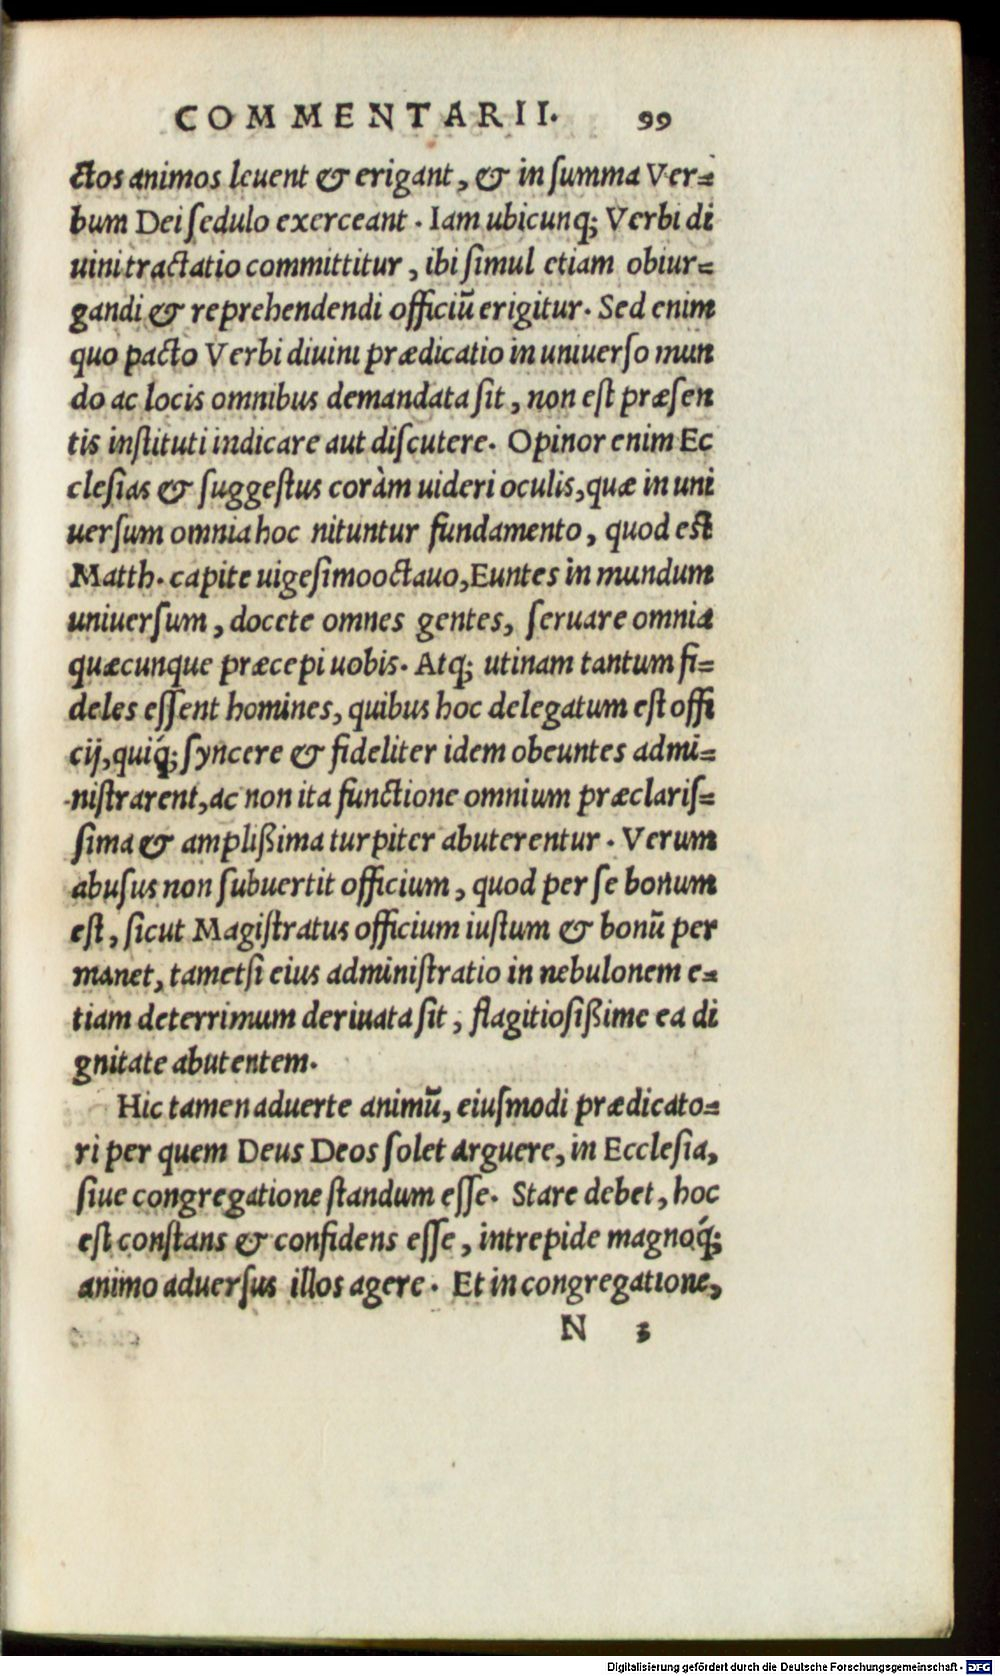 COMMENTARII. 99
ctos animos leuent & erigant, & in ſumma Ver=
bum Dei ſedulo exerceant. Iam ubicunq; Verbi di
uini tractatio committitur, ibi ſimul etiam obiur=
gandi & reprehendendi officiū erigitur. Sed enim
quo pacto Verbi diuini prædicatio in uniuerſo mun
do ac locis omnibus demandata ſit, non eſt præſen
tis inſtituti indicare aut diſcutere. Opinor enim Ec
cleſias & ſuggeſtus coràm uideri oculis, quæ in uni
uerſum omnia hoc nituntur fundamento, quod eſt
Matth. capite uigeſimooctauo, Euntes in mundum
uniuerſum, docete omnes gentes, ſeruare omnia
quæcunque præcepi uobis. Atq; utinam tantum fi=
deles eſſent homines, quibus hoc delegatum eſt offi
cij, quiq́; ſyncere & fideliter idem obeuntes admi=
niſtrarent, ac non ita functione omnium præclariſ=
ſima & amplißima turpiter abuterentur. Verum
abuſus non ſubuertit officium, quod per ſe bonum
eſt, ſicut Magiſtratus officium iuſtum & bonū per
manet, tametſi eius adminiſtratio in nebulonem e=
tiam deterrimum deriuata ſit, flagitioſißime ea di
gnitate abutentem.
Hic tamen aduerte animū, eiuſmodi prædicato=
ri per quem Deus Deos ſolet arguere, in Eccleſia,
ſiue congregatione ſtandum eſſe. Stare debet, hoc
eſt conſtans & confidens eſſe, intrepide magnoq́;
animo aduerſus illos agere. Et in congregatione,
N 3
Digitalisierung gefördert durch die Deutsche Forschungsgemeinschaft - DFG